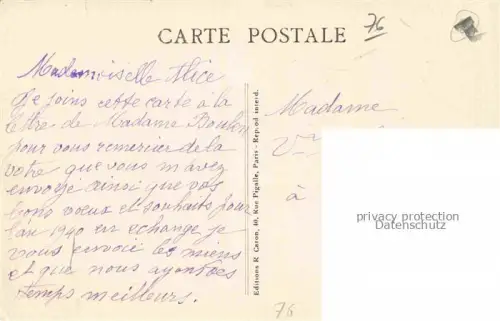 CARTE POSTALE
76
Mademoiselle Alice
Je joins cette carte à la
lettre de Madame Boulon
pour vous remercier de la
votre que vous m'avez
envoyé ainsi que vos
bons voeux et souhaits pour
l'an 1940 en échange je
vous envoie les miens
et que nous ayons des
temps meilleurs.
Editions R Caron, 40, Rue Pigalle, Paris - Rep.od interd.
Madame
à
privacy protection
Datenschutz
76